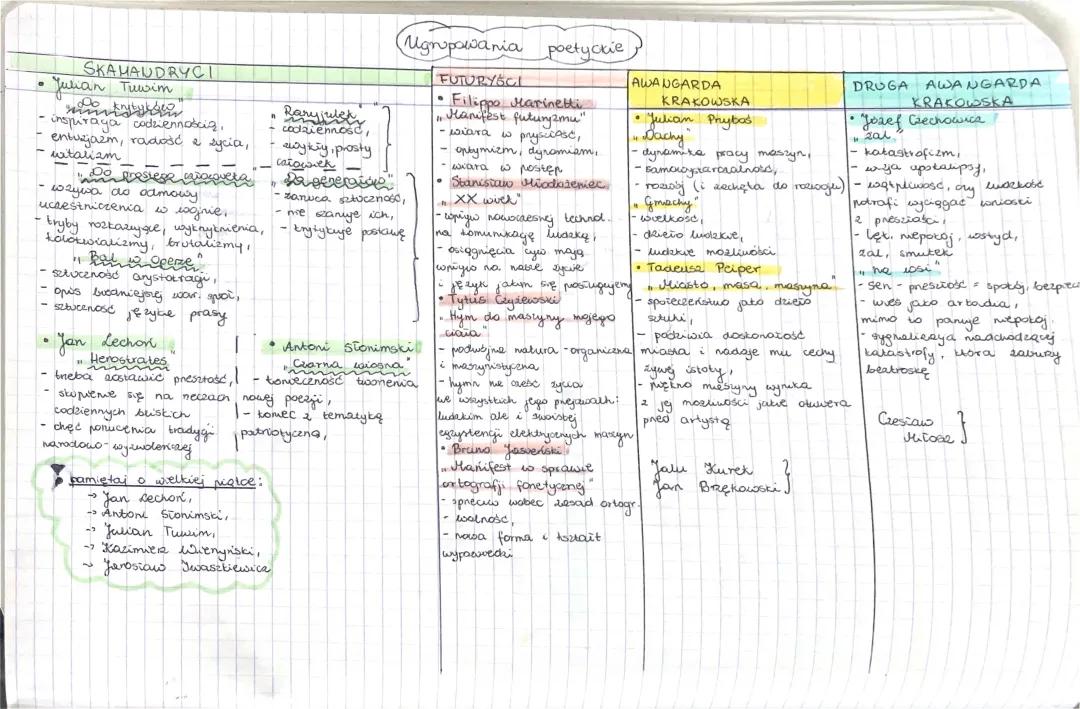 Ugrupowania poetyckie
SKAMANDRYCI
• Julian Tuwim
"Do krytyków"
- inspiracja codziennością,
- entuzjazm, radość z życia,
- witalizm
"Do prostego człowieka"
- wzywa do odmowy
uczestniczenia w wojnie,
- tryby rozkazujące, wykrzyknienia,
kolokwializmy, brutalizmy,
"Bal w Operze"
- sztuczność arystokracji,
- opis biedniejszej war. społ.,
- sztuczność języka prasy
"Ranyjulek"
- codzienność,
- zwykły, prosty
człowiek
"Do generałów"
- zarzuca sztuczność,
- nie szanuje ich,
- krytykuje postawę
• Jan Lechoń
"Herostrates"
- trzeba zostawić przeszłość,
- skupienie się na rzeczach
codziennych bliskich
- chęć porzucenia tradycji
narodowo-wyzwoleńczej
• Antoni Słonimski
"Czarna wiosna"
- konieczność tworzenia
nowej poezji,
- koniec z tematyką
patriotyczną,
pamiętaj o wielkiej piątce:
→ Jan Lechoń,
→ Antoni Słonimski,
→ Julian Tuwim,
→ Kazimierz Wierzyński,
→ Jarosław Iwaszkiewicz
FUTURYŚCI
• Filippo Marinetti
"Manifest futuryzmu"
- wiara w przyszłość,
- optymizm, dynamizm,
- wiara w postęp
• Stanisław Młodożeniec
"XX wiek"
- wpływ nowoczesnej technol.
na komunikację ludzką,
- osiągnięcia cyw mają
wpływ na nasze życie
i język jakim się posługujemy
• Tytus Czyżewski
"Hymn do maszyny mojego
ciała"
- podwójna natura - organiczna
i maszynistyczna
- hymn na cześć życia
we wszystkich jego przejawach:
ludzkim ale i swoistej
egzystencji elektrycznych maszyn
• Bruno Jasieński
"Manifest w sprawie
ortografji fonetycznej"
- sprzeciw wobec zasad ortogr.
- wolność,
- nowa forma i kształt
wypowiedzi
AWANGARDA
KRAKOWSKA
• Julian Przyboś
"Dachy"
- dynamika pracy maszyn,
- samowystarczalność,
- rozwój (i zachęta do rozwoju)
"Gmachy"
- wielkość,
- dzieło ludzkie,
- ludzkie możliwości
• Tadeusz Peiper
"Miasto, masa, maszyna"
- społeczeństwo jako dzieło
sztuki,
- podziwia doskonałość
miasta i nadaje mu cechy
żywej istoty,
- piękno maszyny wynika
z jej możliwości jakie otwiera
przed artystą
Jalu Kurek
Jan Brzękowski
DRUGA AWANGARDA
KRAKOWSKA
• Józef Czechowicz
"żal"
- katastrofizm,
- wizja apokalipsy,
- wątpliwość, czy ludzkość
potrafi wyciągać wnioski
z przeszłości,
- lęk, niepokój, wstyd,
żal, smutek
"na wsi"
- sen - przeszłość = spokój, bezpiecz
- wieś jako arkadia,
mimo to panuje niepokój
- sygnalizacja nadchodzącej
katastrofy, która zaburzy
beztroskę
Czesław
Miłosz